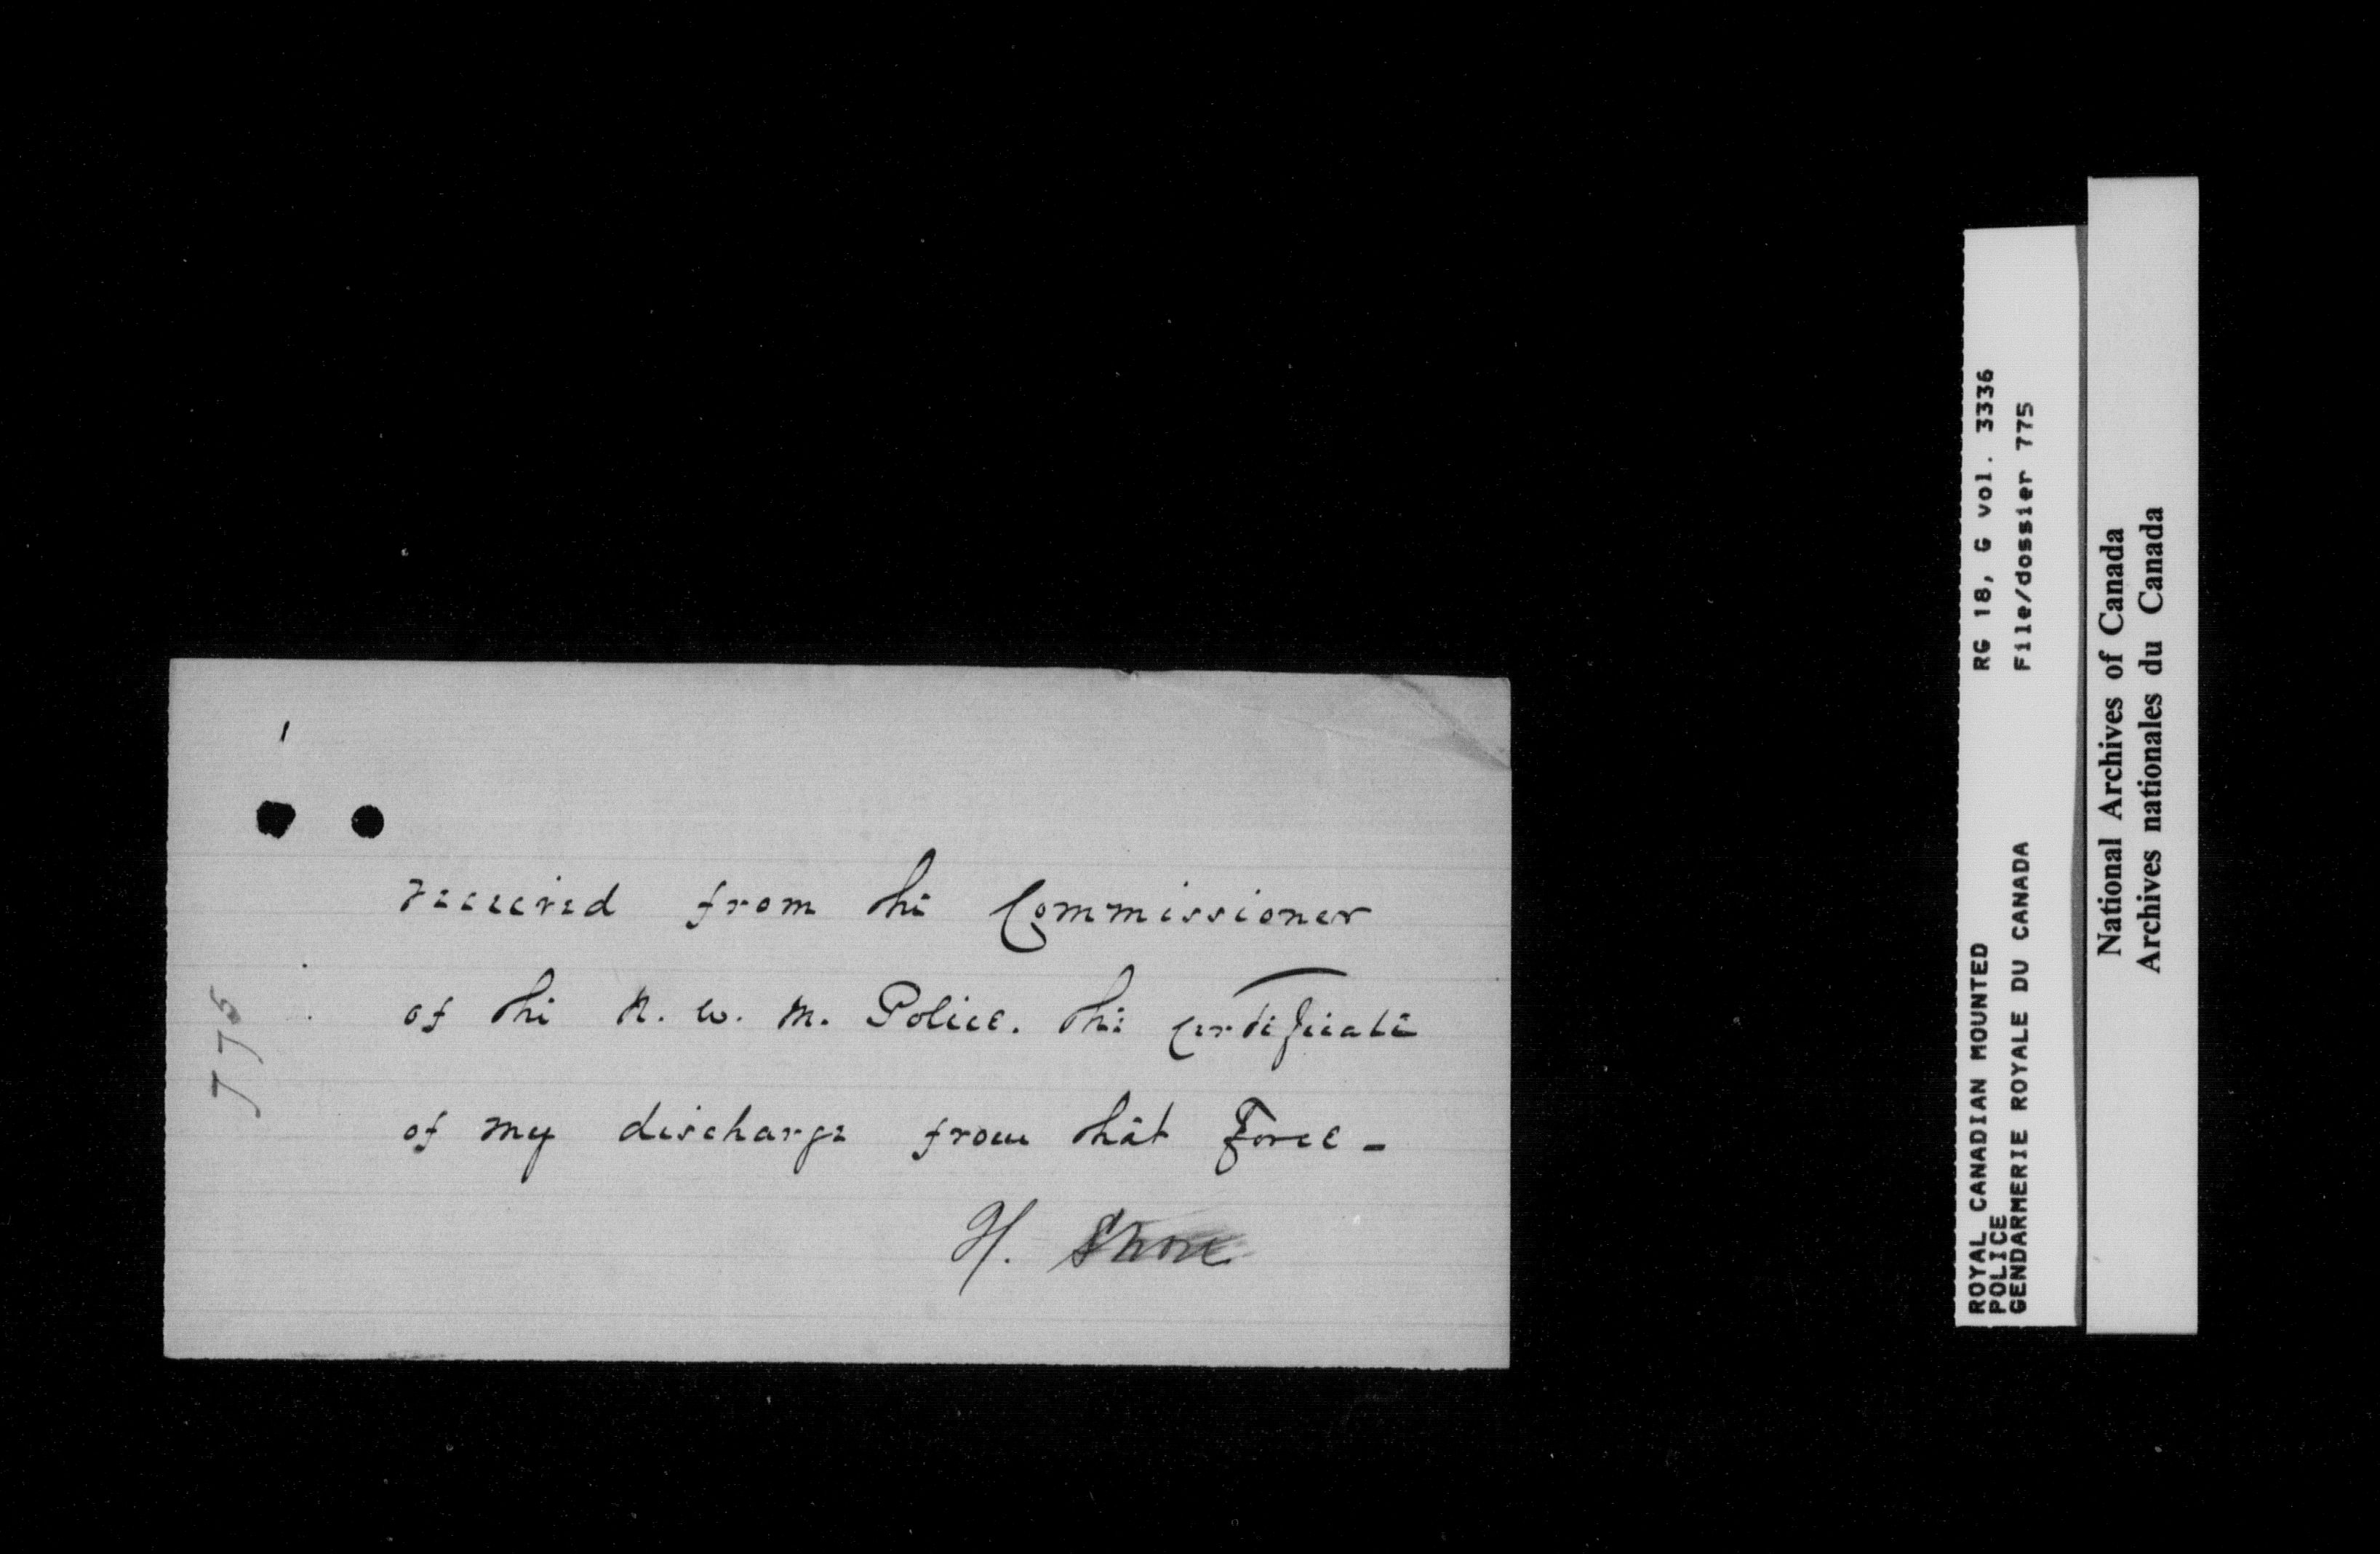 received from the Commissioner
of the N. W. M. Police. the certificate
of my discharge from that Force -
H. Shore
775
ROYAL CANADIAN MOUNTED
POLICE
GENDARMERIE ROYALE DU CANADA
RG 18, G vol. 3336
File/dossier 775
National Archives of Canada
Archives nationales du Canada